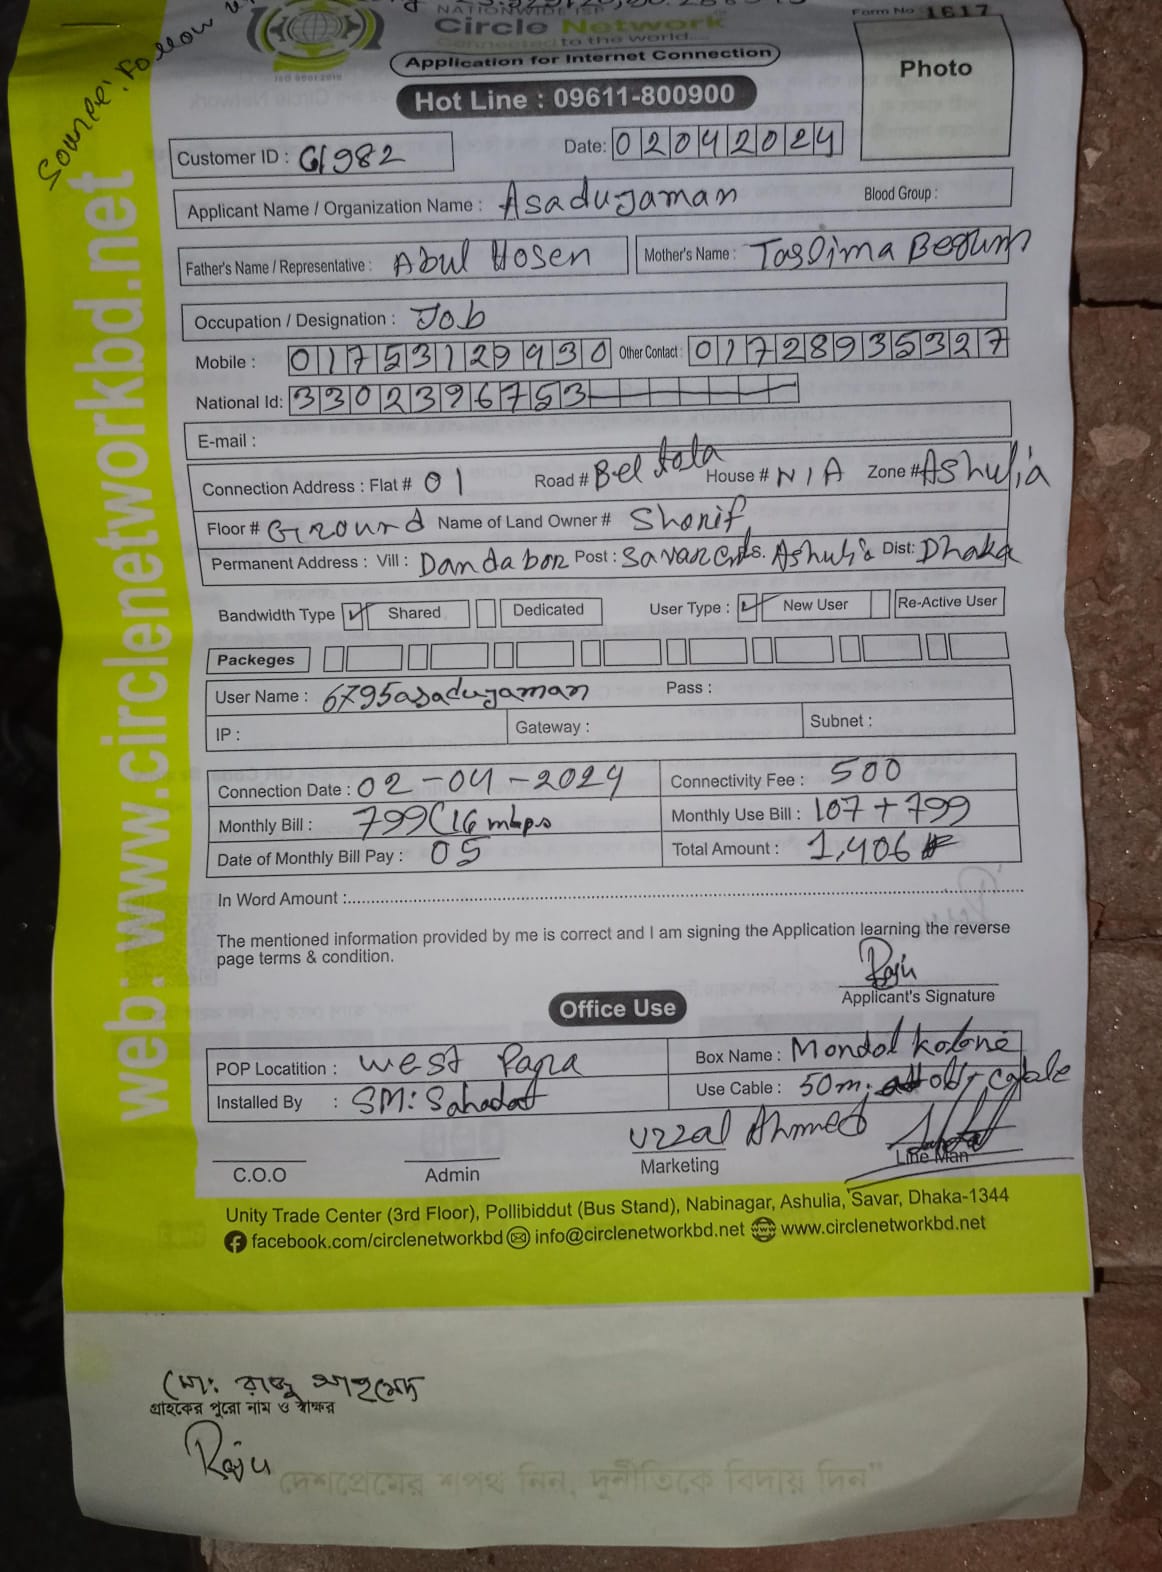 Source: Follow
NATIONWIDE ISP
Form No : 1617
Circle Network
Connected to the world....
ISO 9001:2015
Application for Internet Connection
Hot Line : 09611-800900
Photo
Customer ID : G1982
Date: 02042024
Applicant Name / Organization Name : Asadujaman Blood Group :
Father's Name / Representative : Abul Hosen Mother's Name : Taslima Begum
Occupation / Designation : Job
Mobile : 01753129930 Other Contact : 01728935327
National Id: 3302396753
E-mail :
Connection Address : Flat # 01 Road # Bel tola House # N/A Zone # Ashulia
Floor # Ground Name of Land Owner # Shorif
Permanent Address : Vill : Dandabor Post : Savar Cnt Ps. Ashulia Dist: Dhaka
Bandwidth Type ✓ Shared Dedicated User Type : ✓ New User Re-Active User
Packeges
User Name : 6795asadujaman Pass :
IP : Gateway : Subnet :
Connection Date : 02-04-2024 Connectivity Fee : 500
Monthly Bill : 799(16 mbps Monthly Use Bill : 107+799
Date of Monthly Bill Pay : 05 Total Amount : 1,406
In Word Amount :
The mentioned information provided by me is correct and I am signing the Application learning the reverse
page terms & condition.
Raju
Applicant's Signature
Office Use
POP Locatition : West Para Box Name : Mondol kolone
Installed By : SM: Sahadat Use Cable : 50m. old cable
Uzzal Ahmed
C.O.O Admin Marketing Line Man
Unity Trade Center (3rd Floor), Pollibiddut (Bus Stand), Nabinagar, Ashulia, Savar, Dhaka-1344
facebook.com/circlenetworkbd info@circlenetworkbd.net www.circlenetworkbd.net
web: www.circlenetworkbd.net
মো: রাজু আহমেদ
গ্রাহকের পুরো নাম ও স্বাক্ষর
Raju
দেশপ্রেমের শপথ নিন, দুর্নীতিকে বিদায় দিন"